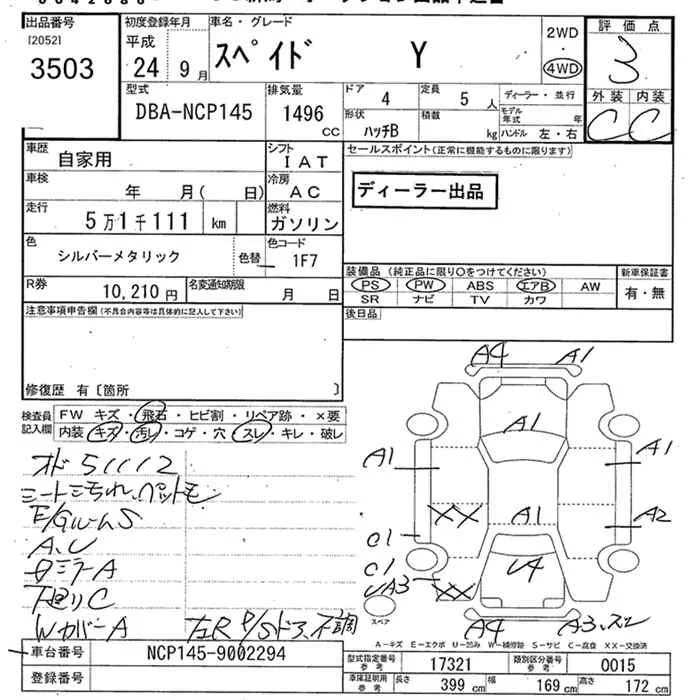 出品番号
[2052]
3503
初度登録年月
平成
24 9月
車名・グレード
スペイド Y
2WD
・
4WD
評価点
3
外装 内装
C C
型式
DBA-NCP145
排気量
1496
CC
ドア 4
定員 5 人
ディーラー・並行
形状 ハッチB
積載 kg
モデル年式 年
ハンドル 左・右
車歴 自家用
シフト IAT
セールスポイント(正常に機能するものに限ります)
車検 年 月( 日)
冷房 AC
ディーラー出品
走行 5万1千111 km
燃料 ガソリン
色 シルバーメタリック
色替
色コード 1F7
装備品 (純正品に限り○をつけてください)
新車保証書
PS PW ABS エアB AW
有・無
SR ナビ TV カワ
R券 10,210円
名変通知期限 月 日
後日品
注意事項申告欄(不具合内容等は具体的に記入して下さい)
修復歴 有〔箇所 〕
検査員記入欄
FW キズ・飛石・ヒビ割・リペア跡・×要
内装 キズ・汚レ・コゲ・穴・スレ・キレ・破レ
オド51112
シートヨゴれ、ペットモ
E/GルームS
A.U
タミラーA
下廻りC
WカバーA
左R P/Sドア不調
A4 A1
A1
A1 A1
XX A1 A2
C1
C1
UA3 XX U4
スペア
A4 A3.スレ
A-キズ E-エクボ U-凹み W-補修跡 S-サビ C-腐食 XX-交換済
車台番号 NCP145-9002294
登録番号
型式指定番号参考 17321
類別区分番号参考 0015
車庫証明用参考 長さ 399 cm 幅 169 cm 高さ 172 cm